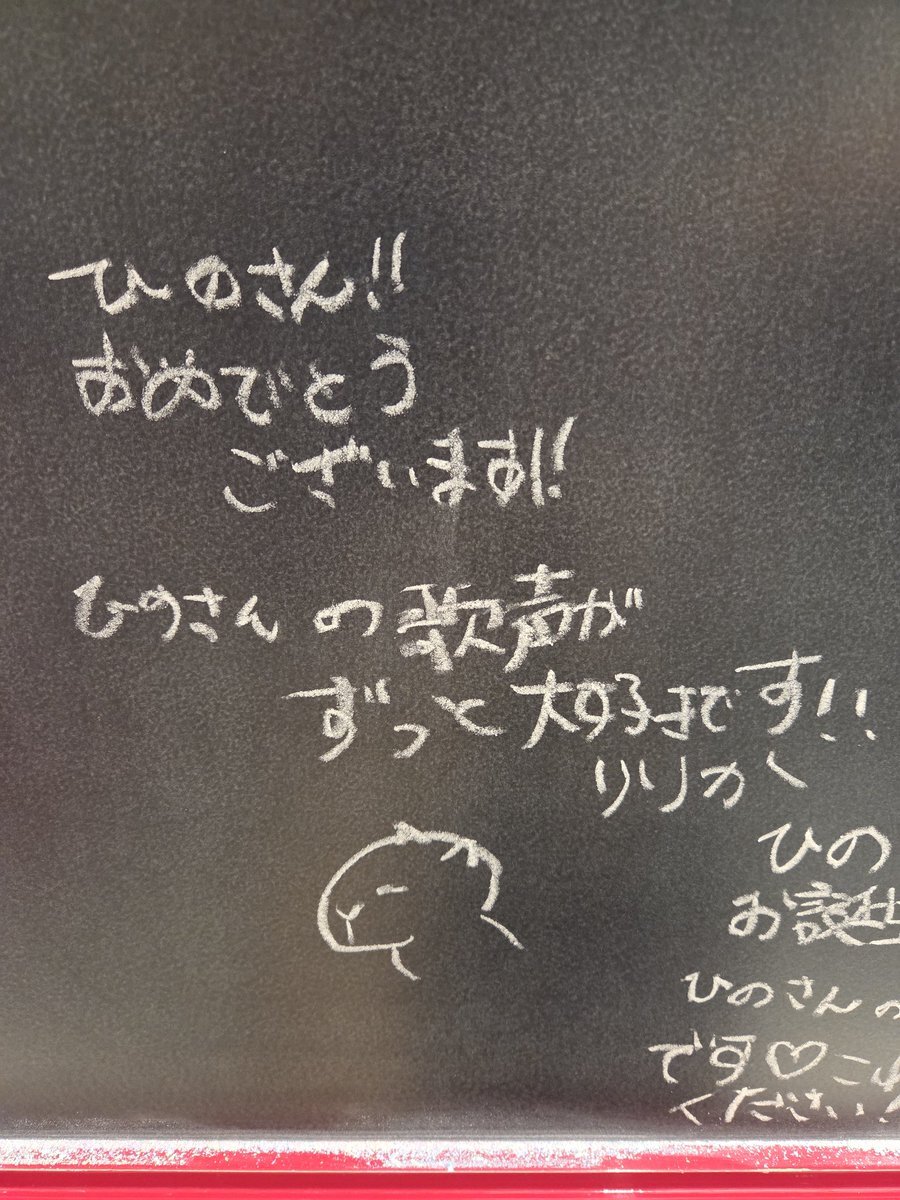 ひのさん!!
おめでとう
ございます!!
ひのさんの歌声が
ずっと大好きです!!
りりか
ひの
お誕生
ひのさんの
です♡こ
ください!